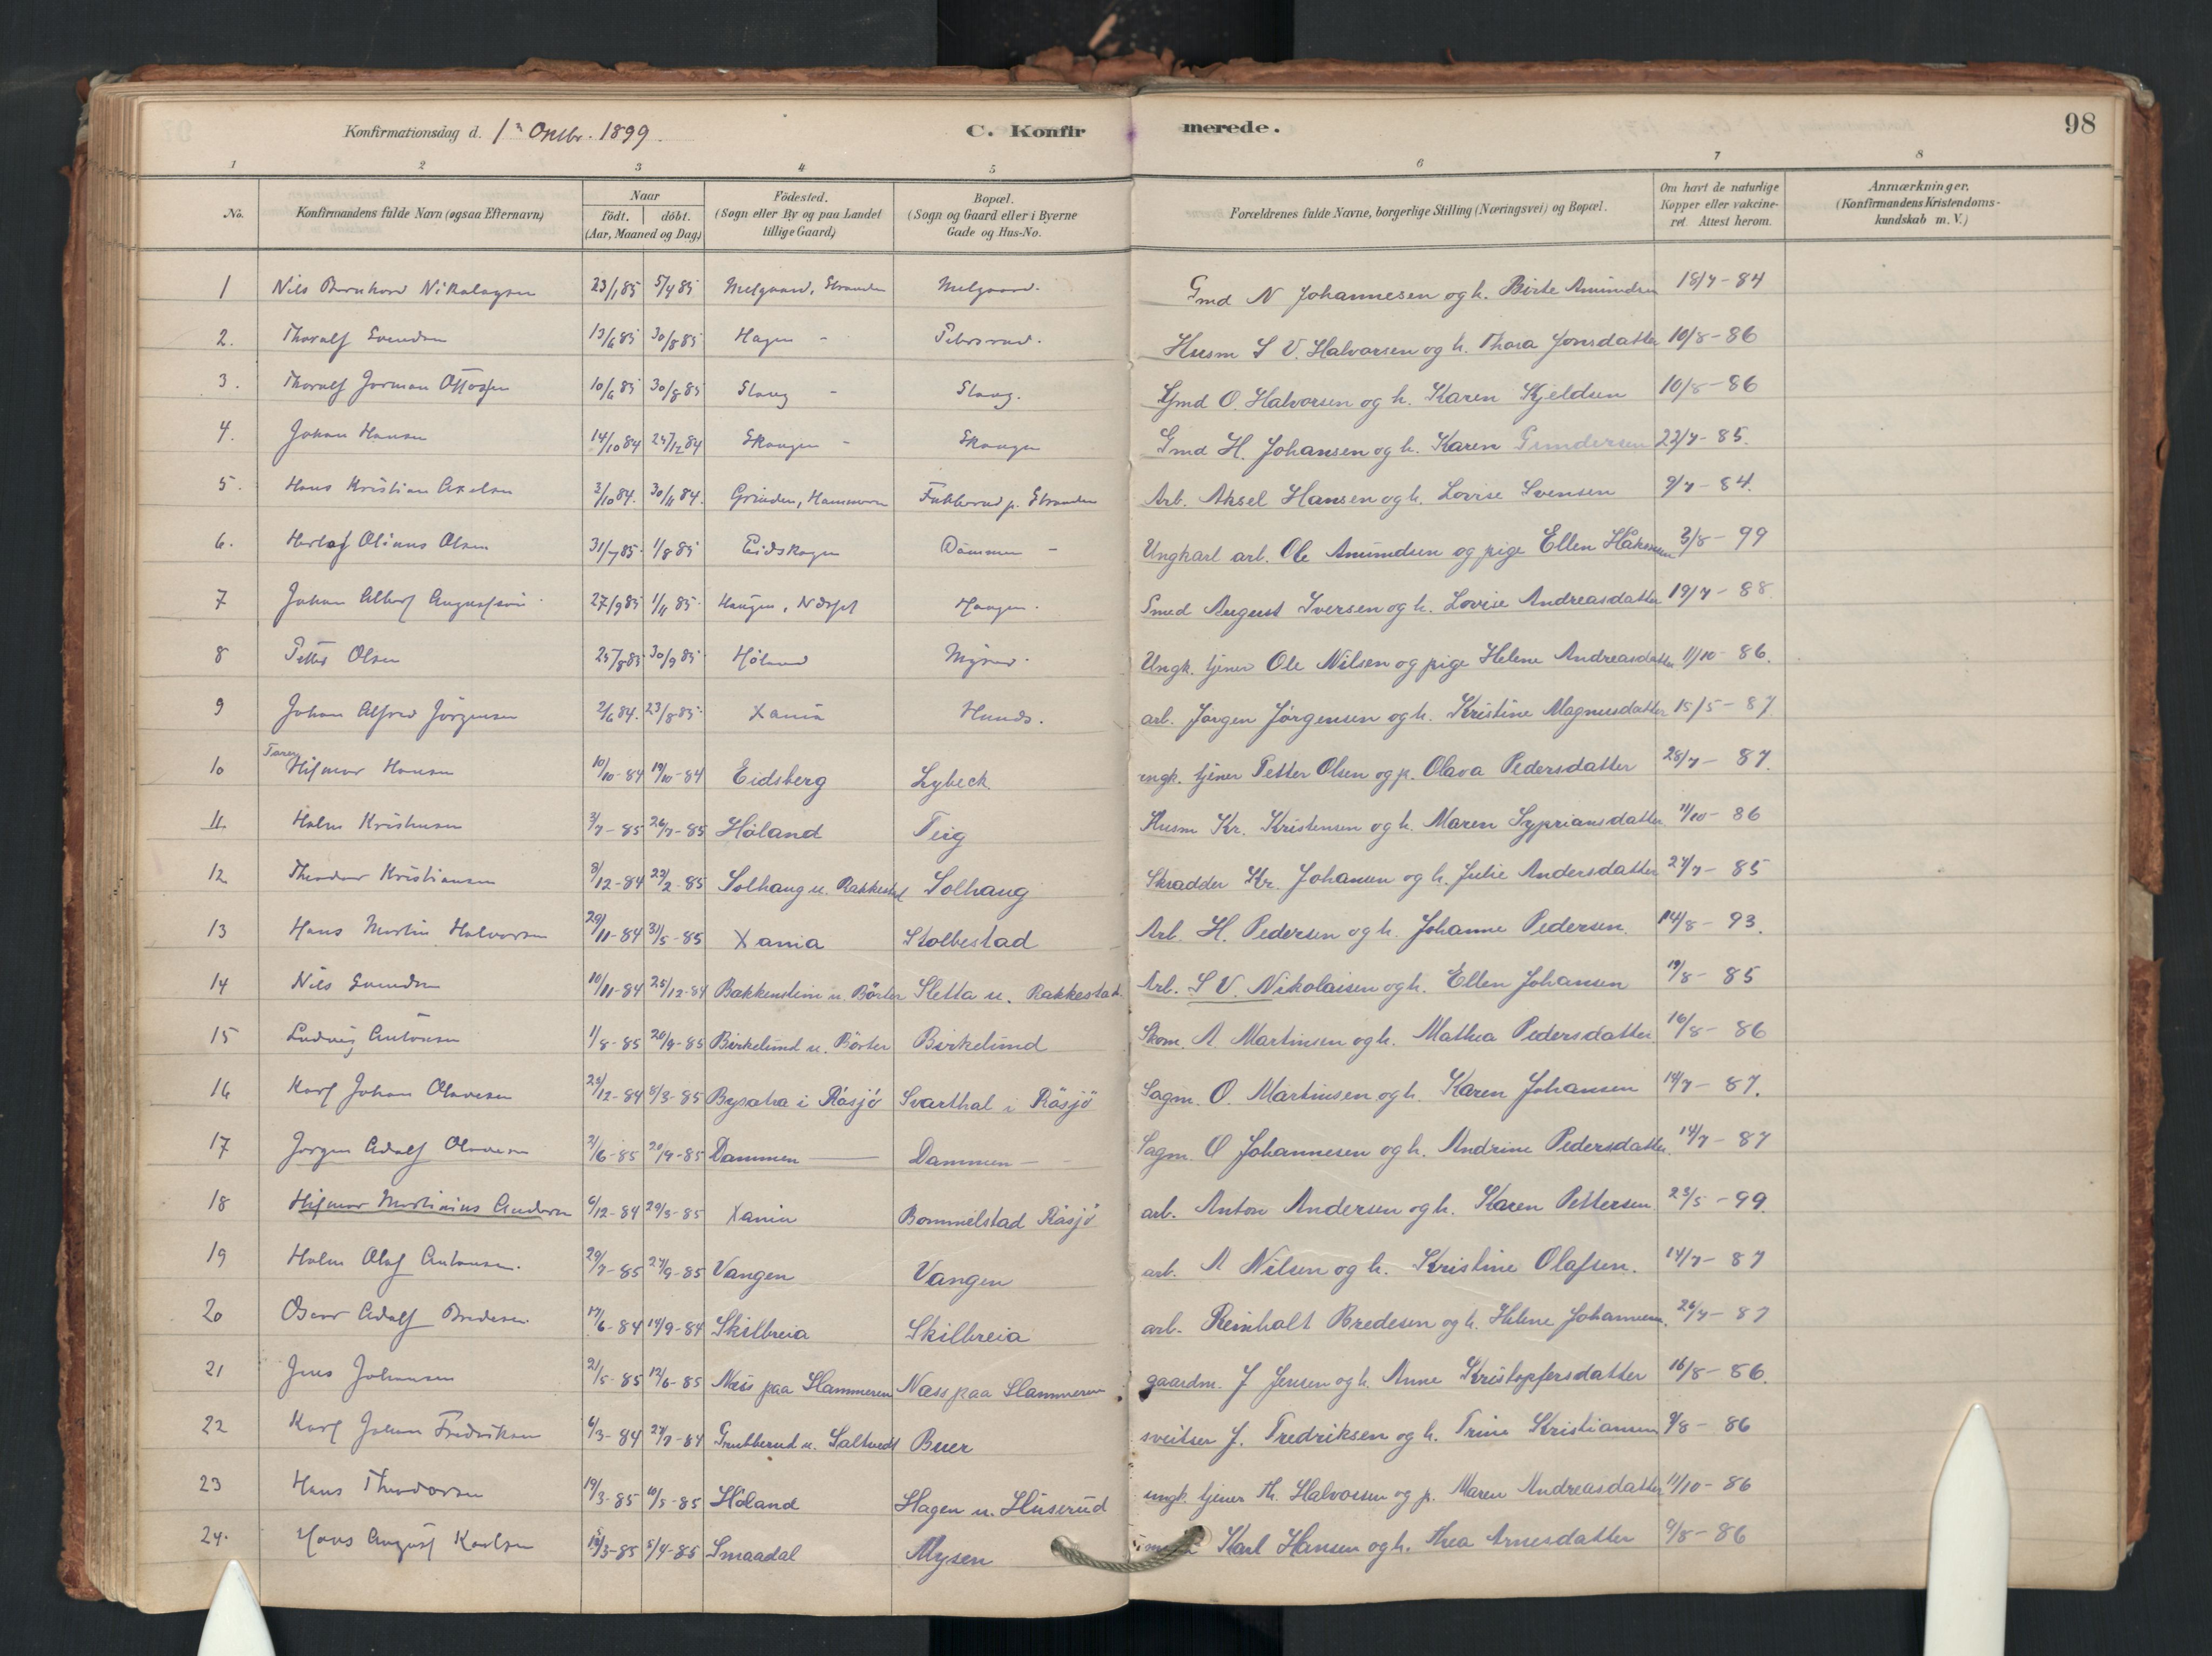 Konfirmationsdag d. 1 Octbr. 1899.
C. Konfirmerede.
98
1 2 3 4 5 6 7 8
No.
Konfirmandens fulde Navn (ogsaa Efternavn)
Naar
födt. döbt.
(Aar, Maaned og Dag.)
Födested.
(Sogn eller By og paa Landet
tillige Gaard)
Bopæl.
(Sogn og Gaard eller i Byerne
Gade og Hus-No.
Forældrenes fulde Navne, borgerlige Stilling (Næringsvei) og Bopæl.
Om havt de naturlige
Kopper eller vakcine-
ret. Attest herom.
Anmærkninger.
(Konfirmandens Kristendoms-
kundskab m. V.)
1 Nils Bernhard Nikolaysen 23/1 85 5/4 85 Melgaard, Melgaard. Gmd N Johannesen og h. Birte Amundsen 18/7-84
2. Thoralf 13/6 85 30/8 85 Hagen - Husm S V. Halvorsen og h. Thora Jonsdatter 10/8-86
3. Thoralf Ottosen 10/6 85 30/8 85 - Gmd O. Halvorsen og h. Karen Kjeldsen 10/8-86
4. Johan Hansen 14/10 84 /12 84 Skaugen - Skaugen Gmd H. Johansen og h. Karen Gundersen 22/7-85.
5. Hans Kristian Axelsen 2/10 84. 30/11 84. Arb. Aksel Hansen og h. Lovise Svensen 9/7-84.
6. Olaus Olsen 31/7 85 1/8 85 Eidskogen Dammen - Ungkarl arb. Ole Amundsen og pige Ellen 3/8-99
7 Johan Albert Augustsen 27/9 85 1/11 85 Haugen, Haugen. Smed August Iversen og h. Lovise Andreasdatter 19/7-88.
8 Petter Olsen 25/8 85 30/9 85 Høland Ungk. tjener Ole Nilsen og pige Helene Andreasdatter 11/10-86.
9 Johan Alfred Jörgensen 2/6 84. 23/8 85 Xania arb. Jørgen Jörgensen og h. Kristine Magnusdatter 15/5-87
10 Hjlmar Hansen 10/10-84 19/10-84 Eidsberg Lybeck. ungk. tjener Petter Olsen og p. Olava Pedersdatter 28/7-87.
11. Holm Kristensen 3/7-85 26/7-85 Höland Teig Husm Kr. Kristensen og h. Maren Sypriansdatter 11/10-86
12 Theodor Kristiansen 8/12-84 /2-85 Solhaug u. Rakkestad Solhaug Skradder Kr. Johansen og h. Julie Andersdatter 27/7-85
13 Hans Martin Halvorsen 29/11-84 31/5-85 Xania Stolbestad Arb. H. Pedersen og h. Johanne Pedersen. 14/8-93.
14 Nils 10/11-84 25/12-84 u. Börter Sletta u. Rakkestad Arb. S V. Nikolaisen og h. Ellen Johansen 19/8-85
15 Ludvig Antonsen 1/8-85 20/9-85 Birkelund u. Börter Birkelund Skom. A Martinsen og h. Mathea Pedersdatter 16/8-86
16 Karl Johan Olavesen /12-84 8/3-85 i Räsjö Svarthal i Räsjö Sagm. O. Martinsen og h. Karen Johansen 14/7-87.
17 Jørgen Adolf Olavesen 2/6-85 20/9-85 Dammen Dammen - Sagm. O Johannesen og h. Andrine Pedersdatter 14/7-87
18 Hjlmar Martinius Andersen 6/12-84 29/3-85 Xania Bommelstad Räsjö arb. Anton Andersen og h. Karen Pettersen 23/5-99.
19 Holm Olaf Antonsen. 29/7-85 27/9-85 Vangen Vangen arb. A Nilsen og h. Kristine Olafsen. 14/7-87
20 Oscar Adolf Bredesen. 17/6-84 14/9-84 Skilbreia Skilbreia arb. Reinholt Bredesen og h. Helene Johannesen. 26/7-87
21 Jens Johansen 21/5-85 12/6-85 Næss paa Slammeren Næss paa Slammeren gaardm. J Jensen og h. Anne Kristopfersdatter 16/8-86.
22 Karl Johan Fredriksen 6/3-84 27/7-84 Grubberud u. Saltvedt Buer sveitser J. Fredriksen og h. Trine Kristiansen 9/8-86
23 Hans Theodorsen 19/3-85 10/5-85 Höland Hagen u. Huserud ungk. tjener Th. Halvorsen og p. Maren Andreasdatter 11/10-86
24. Hans August Karlsen /3-85 5/4-85 Smaadal Mysen Karl Hansen og h. Thea Arnesdatter 9/8-86